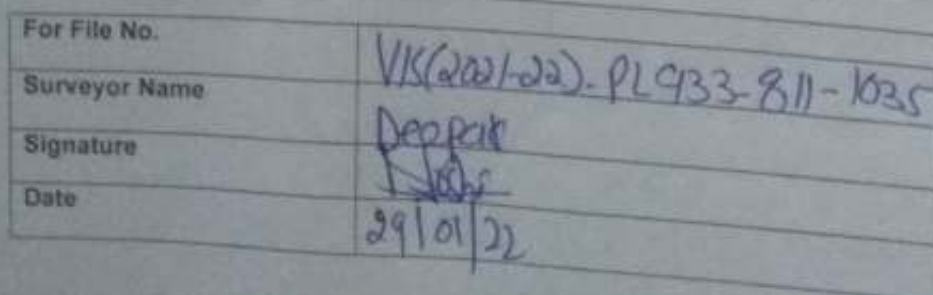 For File No. VIS(2021-22)-PL933-811-1035
Surveyor Name Deepak
Signature
Date 29/01/22